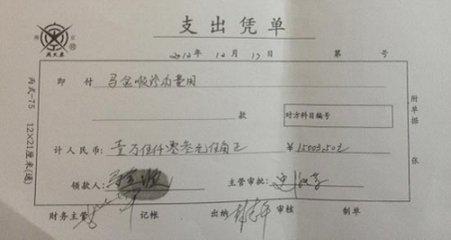 支出凭单
2012年12月17日 第 号
即付 马金顺诊内费用
款 对方科目编号
计人民币：壹万伍仟零叁元伍角正 ￥15003.50元
领款人： 主管审批：
财务主管 记帐 出纳 审核 制单
附单据 张
丙式-75 12×21厘米(通)